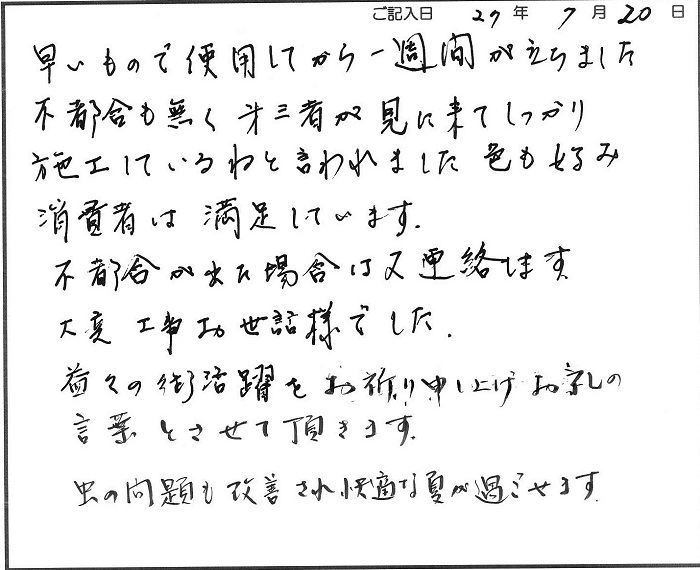 ご記入日 27 年 7 月 20 日
早いもので使用してから一週間が立ちました
不都合も無く 第三者が見に来てしっかり
施工しているねと言われました 色も好み
消費者は満足しています.
不都合が出た場合は又連絡します
大変 工事お世話様でした.
益々の御活躍をお祈り申し上げお礼の
言葉とさせて頂きます.
虫の問題も改善され快適な夏が過ごせます